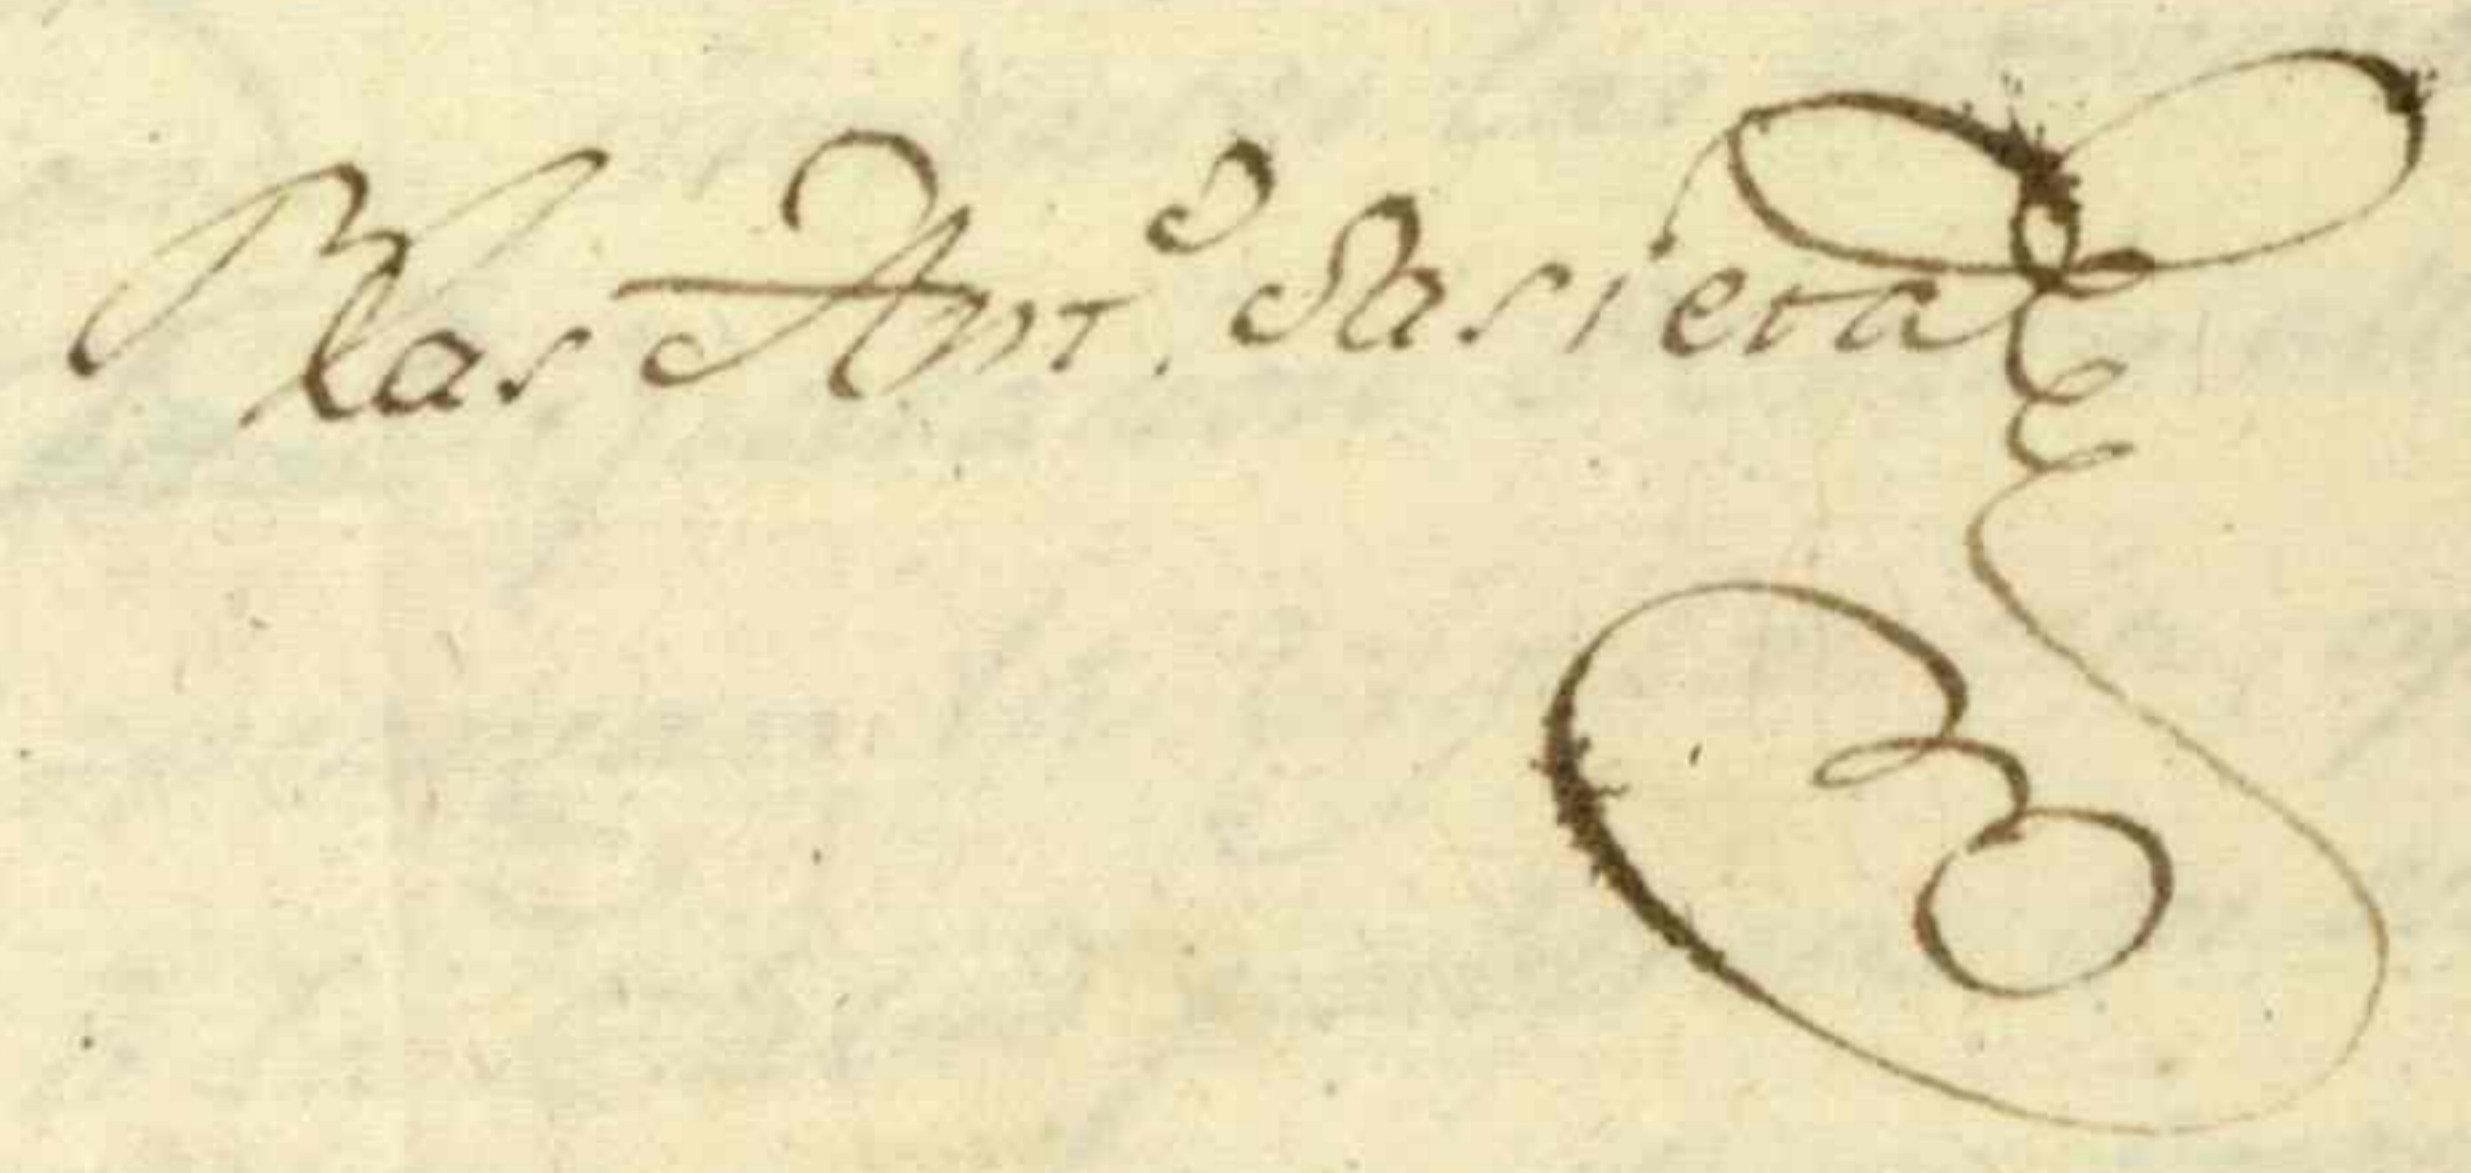 Blas Ant.º Sarieta